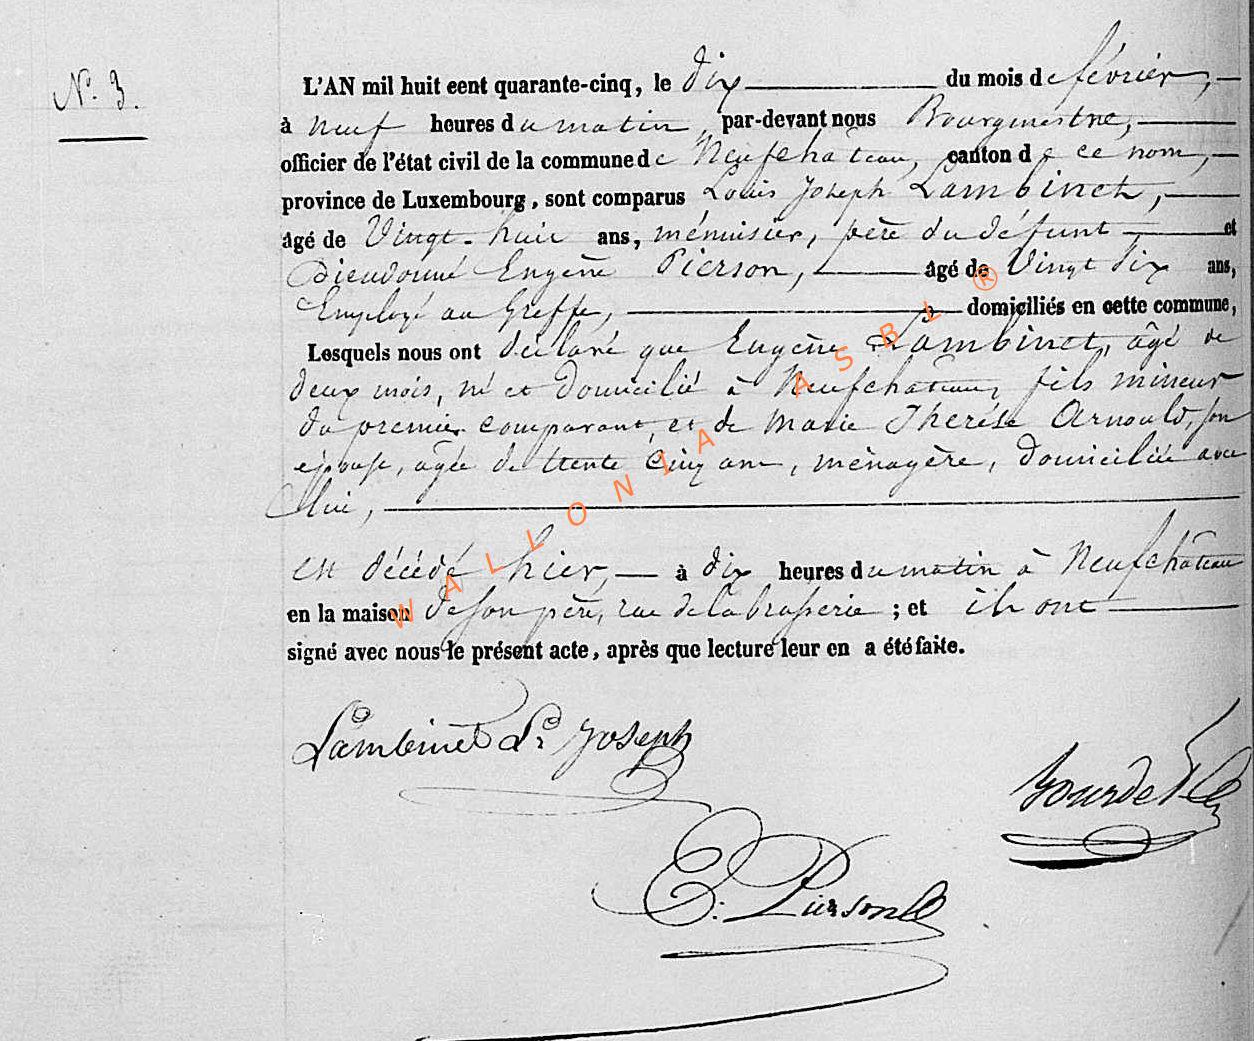 N.º 3.
L'AN mil huit cent quarante-cinq, le dix du mois de février,
à neuf heures du matin, par-devant nous Bourgmestre,
officier de l'état civil de la commune de Neufchâteau, canton de ce nom,
province de Luxembourg, sont comparus Louis Joseph Lambinet,
âgé de Vingt-huit ans, ménuisier, père du défunt et
Dieudonné Eugène Pierson, âgé de Vingt six ans,
Employé au Greffe, domiciliés en cette commune,
Lesquels nous ont déclaré que Eugène Lambinet, âgé de
deux mois, né et domicilié à Neufchâteau, fils mineur
du premier comparant, et de Marie Thérèse Arnould, son
épouse, âgée de trente cinq ans, ménagère, domiciliée avec
lui,
est décédé hier, à dix heures du matin à Neufchâteau
en la maison de son père, rue de la brasserie ; et ils ont
signé avec nous le présent acte, après que lecture leur en a été faite.
Lambinet Ls Joseph
E. Pierson
WALLONIA ASBL ®